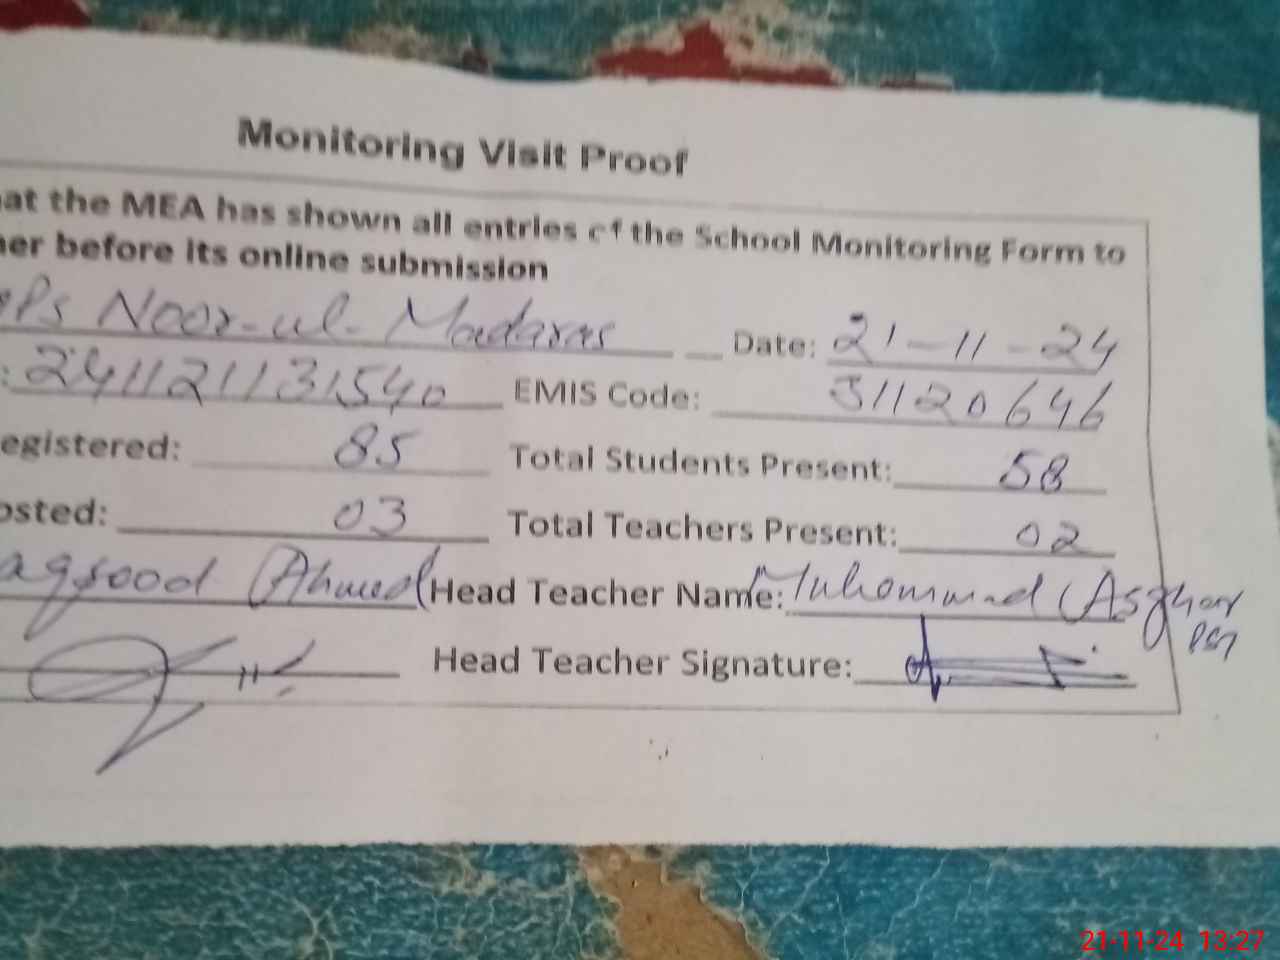 Monitoring Visit Proof
at the MEA has shown all entries of the School Monitoring Form to
her before its online submission
Ps Noor-ul-Madaras Date: 21-11-24
: 241121131540 EMIS Code: 31120646
egistered: 85 Total Students Present: 58
osted: 03 Total Teachers Present: 02
aqsood Ahmed Head Teacher Name: Muhammad Asghar
PST
Head Teacher Signature:
21-11-24 13:27